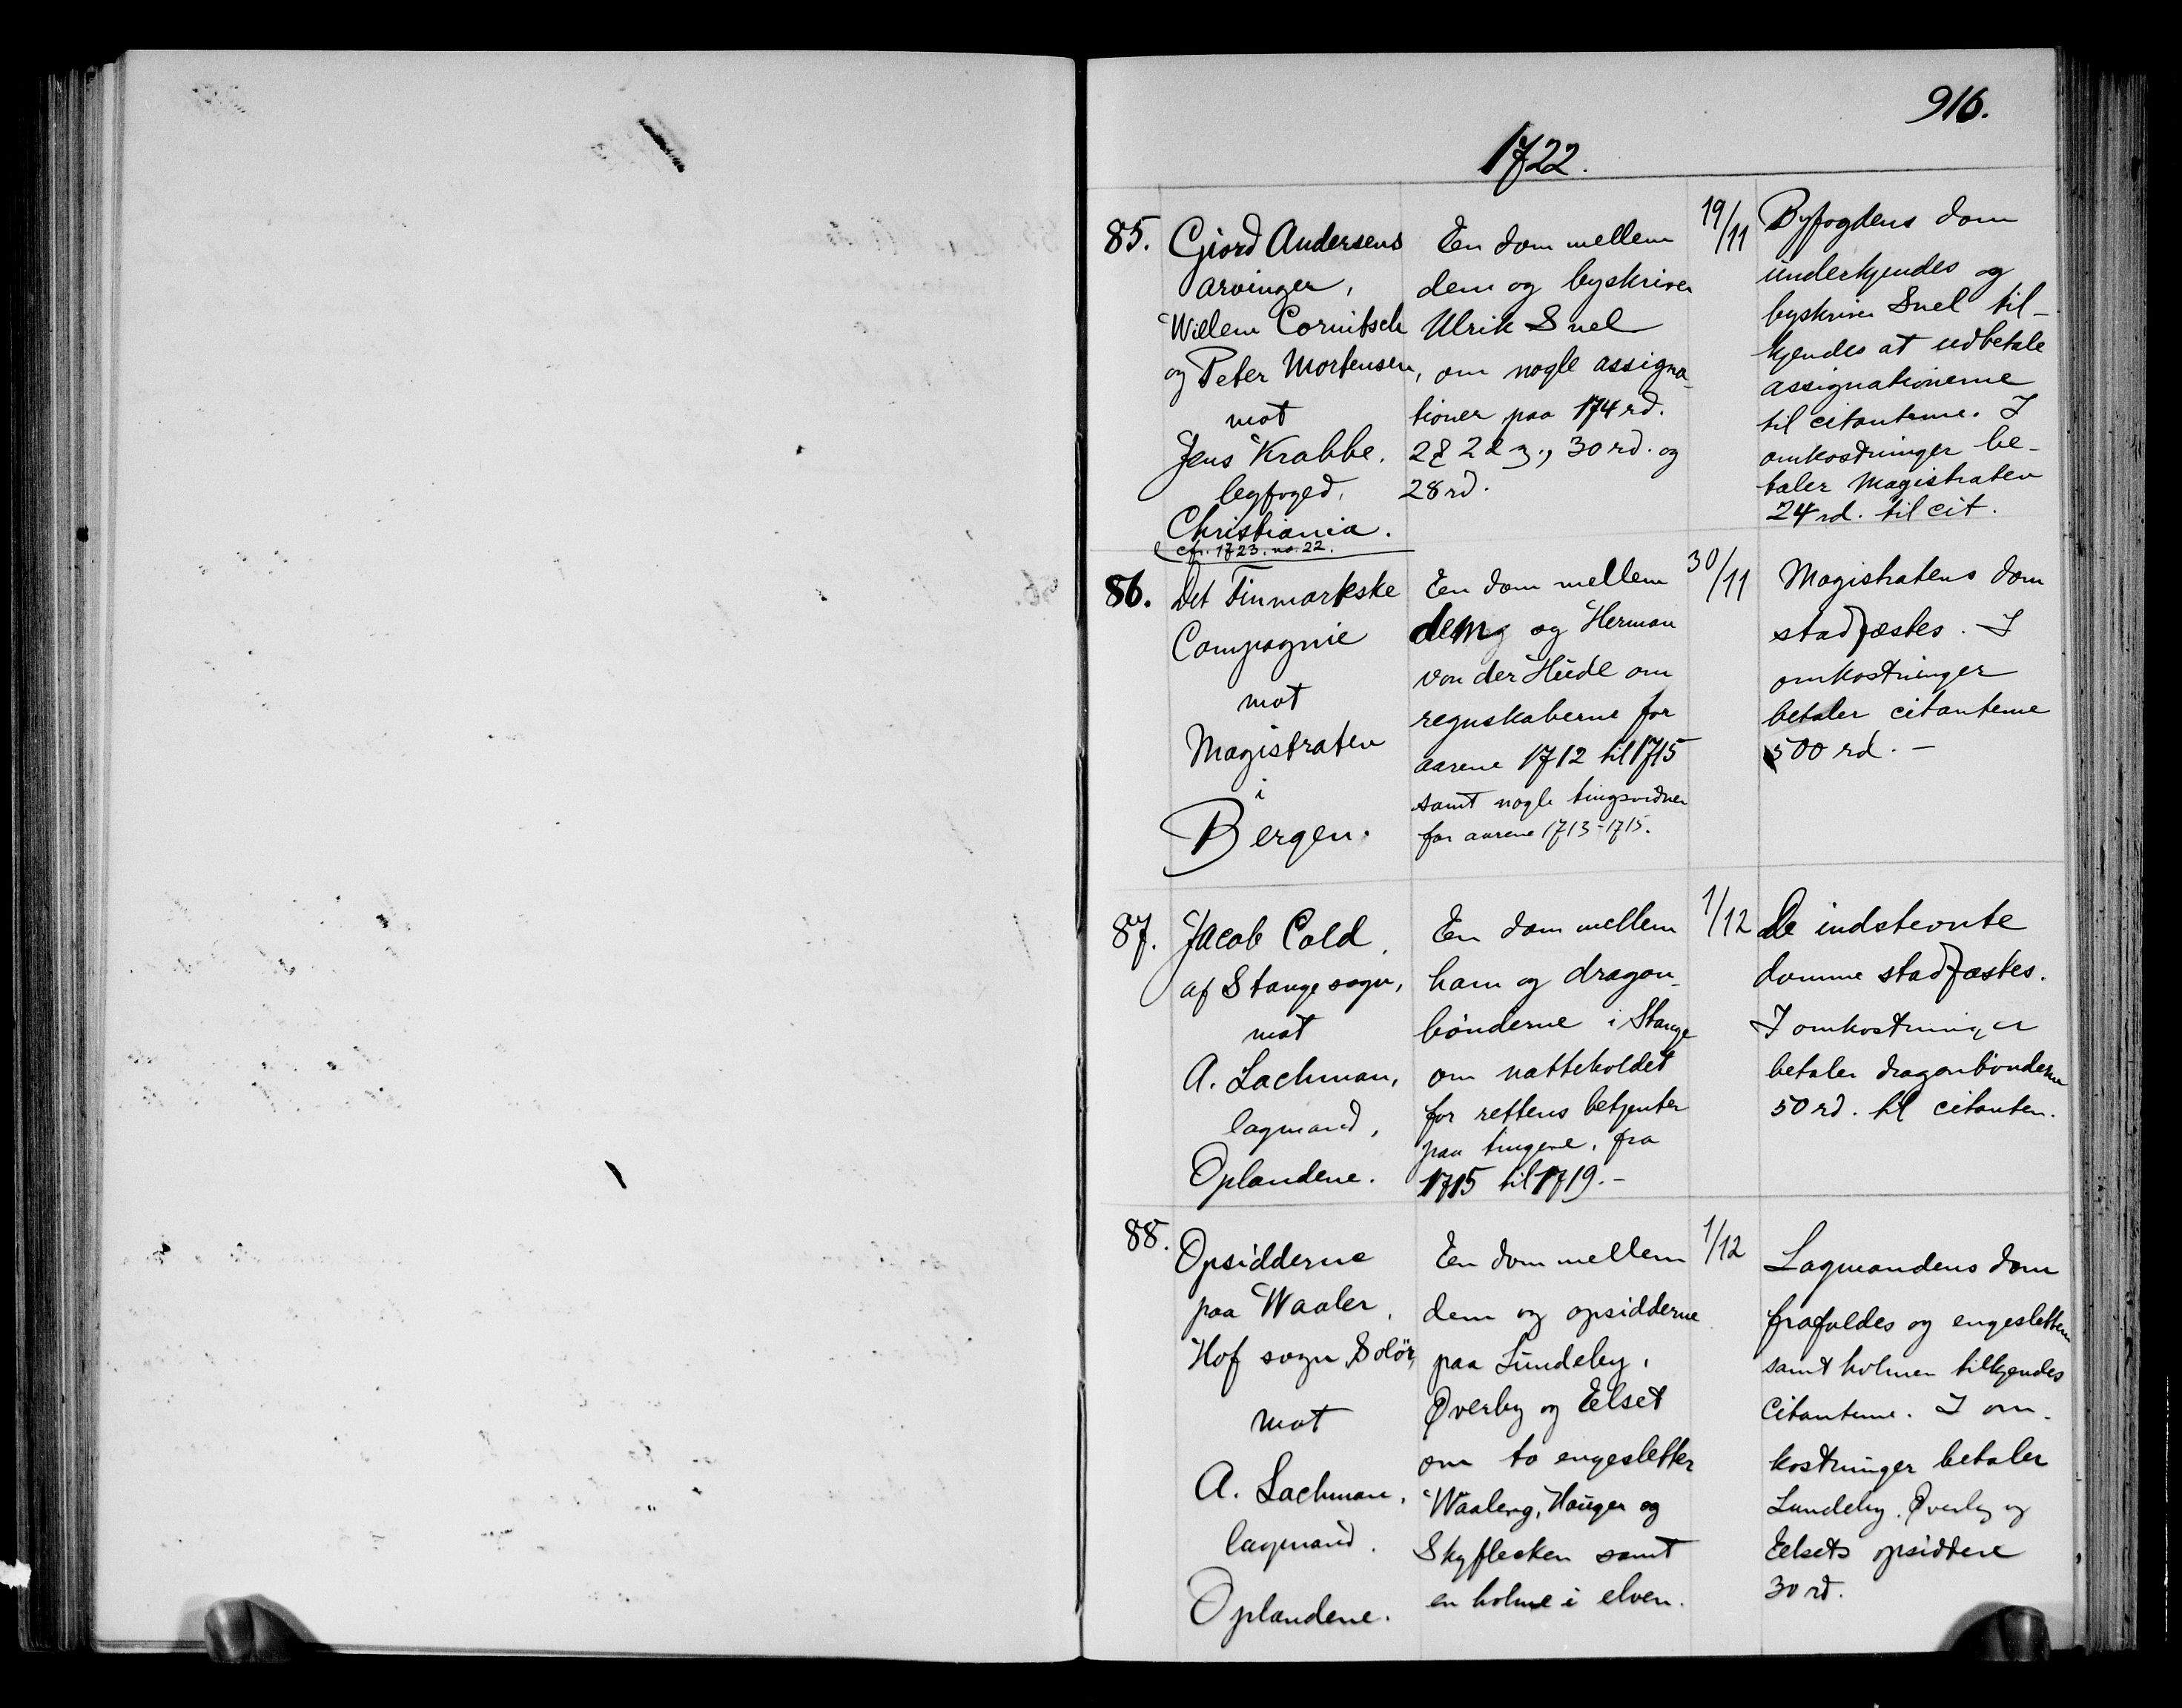 916.
1722.
85.
Gjord Andersens
arvinger,
Willem Cornitsch
og Peter Mortensen,
mot
Jens Krabbe.
byfoged,
Christiania.
cfr. 1723. no. 22.
En dom mellem
dem og byskriver
Ulrik Snel
om nogle assigna-
tioner paa 174 rd.
30 rd. og
28 rd.
19/11
Byfogdens dom
underkjendes og
byskriver Snel til-
kjendes at udbetale
assignationerne
til citanterne. I
omkostninger be-
taler Magistraten
24 rd. til cit.
86.
Det Finmarkske
Compagnie
mot
Magistraten
i
Bergen.
En dom mellem
dem og Herman
von der Hude om
regnskaberne for
aarene 1712 til 1715
samt nogle tingsvidner
for aarene 1713-1715.
30/11
Magistratens dom
stadfæstes. I
omkostninger
betaler citanterne
500 rd. -
87.
Jacob Cold,
af Stange sogn,
mot
A. Lachman,
lagmand,
Oplandene.
En dom mellem
ham og dragon-
bønderne i Stange
om natteholdet
for rettens betjenter
paa tingene, fra
1715 til 1719. -
1/12
De indstevnte
domme stadfæstes.
I omkostninger
betaler dragonbønderne
50 rd. til citanten.
88.
Opsidderne
paa Waaler,
Hof sogn, Solör,
mot
A. Lachman,
lagmand.
Oplandene.
En dom mellem
dem og opsidderne
paa Lundeby,
Øverby og Eelset
om to engesletter
Waaleng, Hauger og
Skyflecken samt
en holme i elven.
1/12
Lagmandens dom
frafaldes og engesletterne
samt holmen tilkjendes
Citanterne. I om-
kostninger betaler
Lundeby, Øverby og
Eelsets opsiddere
30 rd.